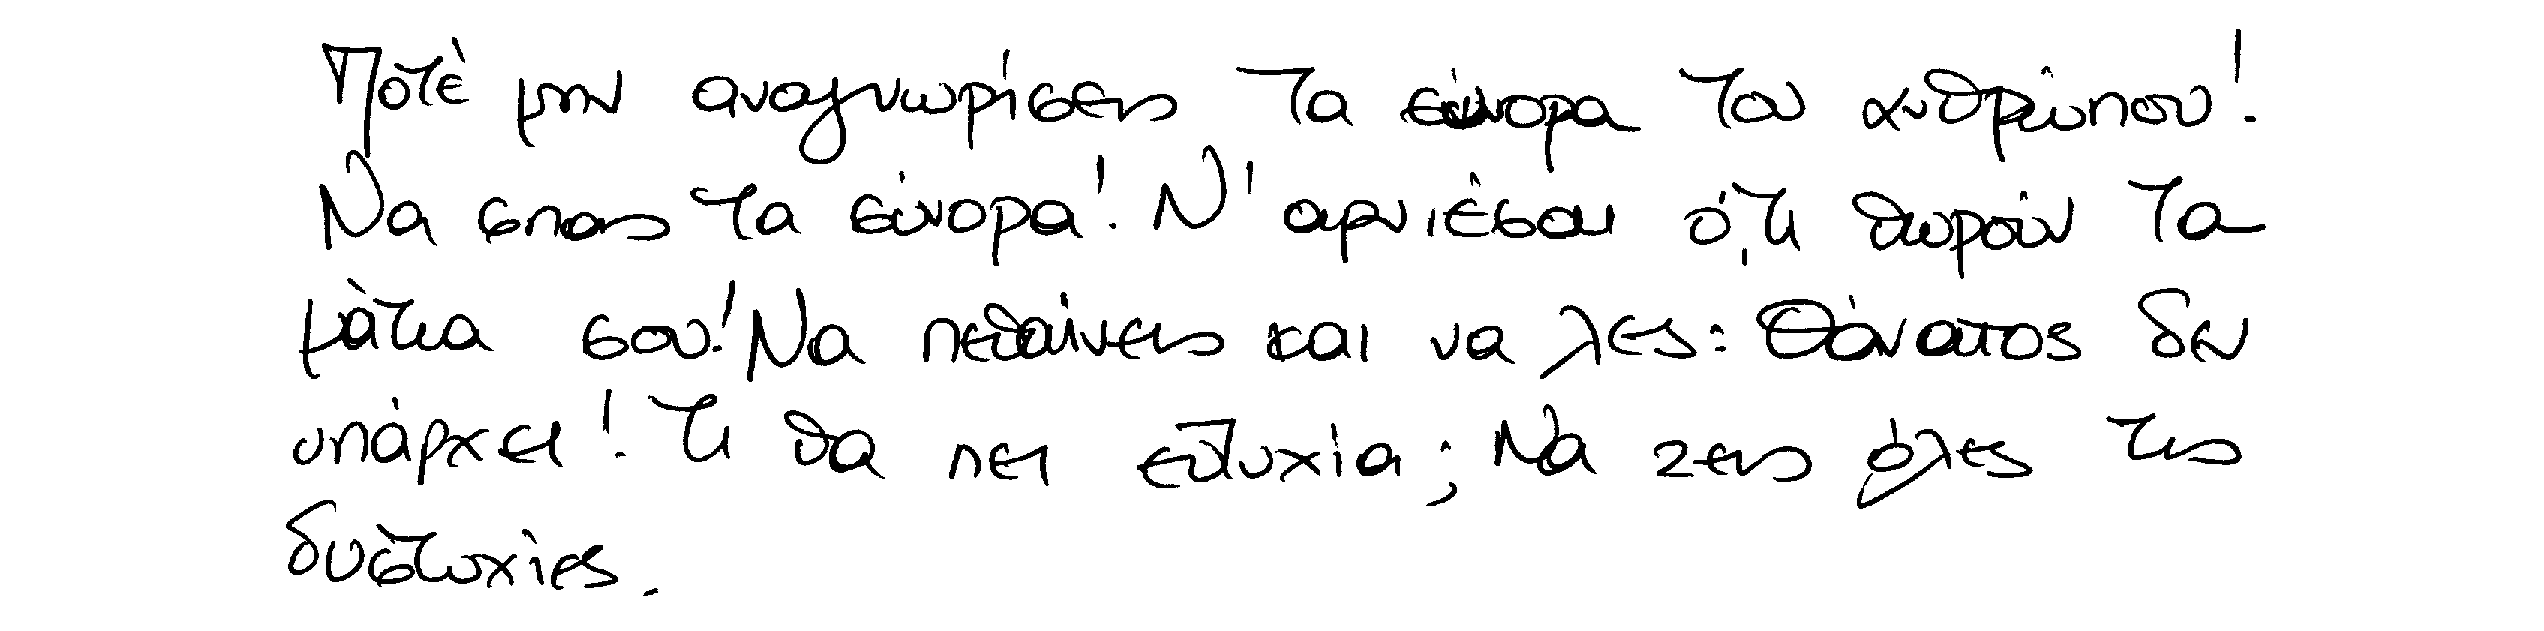 Ποτέ μην αναγνωρίσεις τα σύνορα του ανθρώπου!
Να σπας τα σύνορα! Ν' αρνιέσαι ό,τι θωρούν τα
μάτια σου! Να πεθαίνεις και να λες: Θάνατος δεν
υπάρχει! Τι θα πει ευτυχία; Να ζεις όλες τις
δυστυχίες.